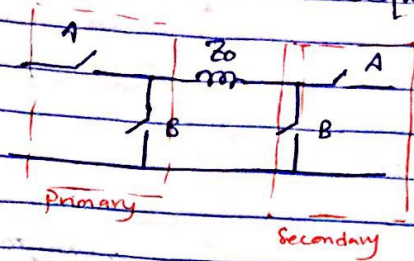 A Zo A
B B
Primary
Secondary